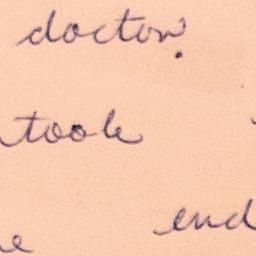 doctor.
took
end